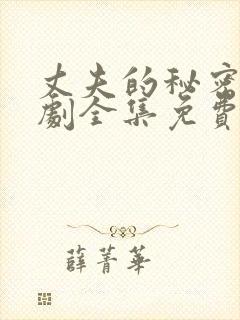 丈夫的秘密
劇全集免費
薛菁華